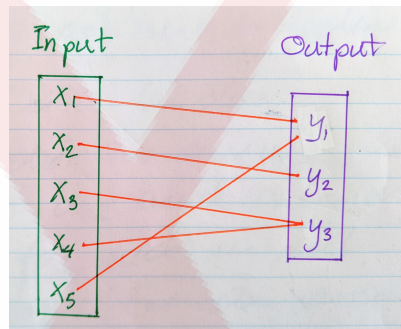 Input
Output
x₁
x₂
x₃
x₄
x₅
y₁
y₂
y₃